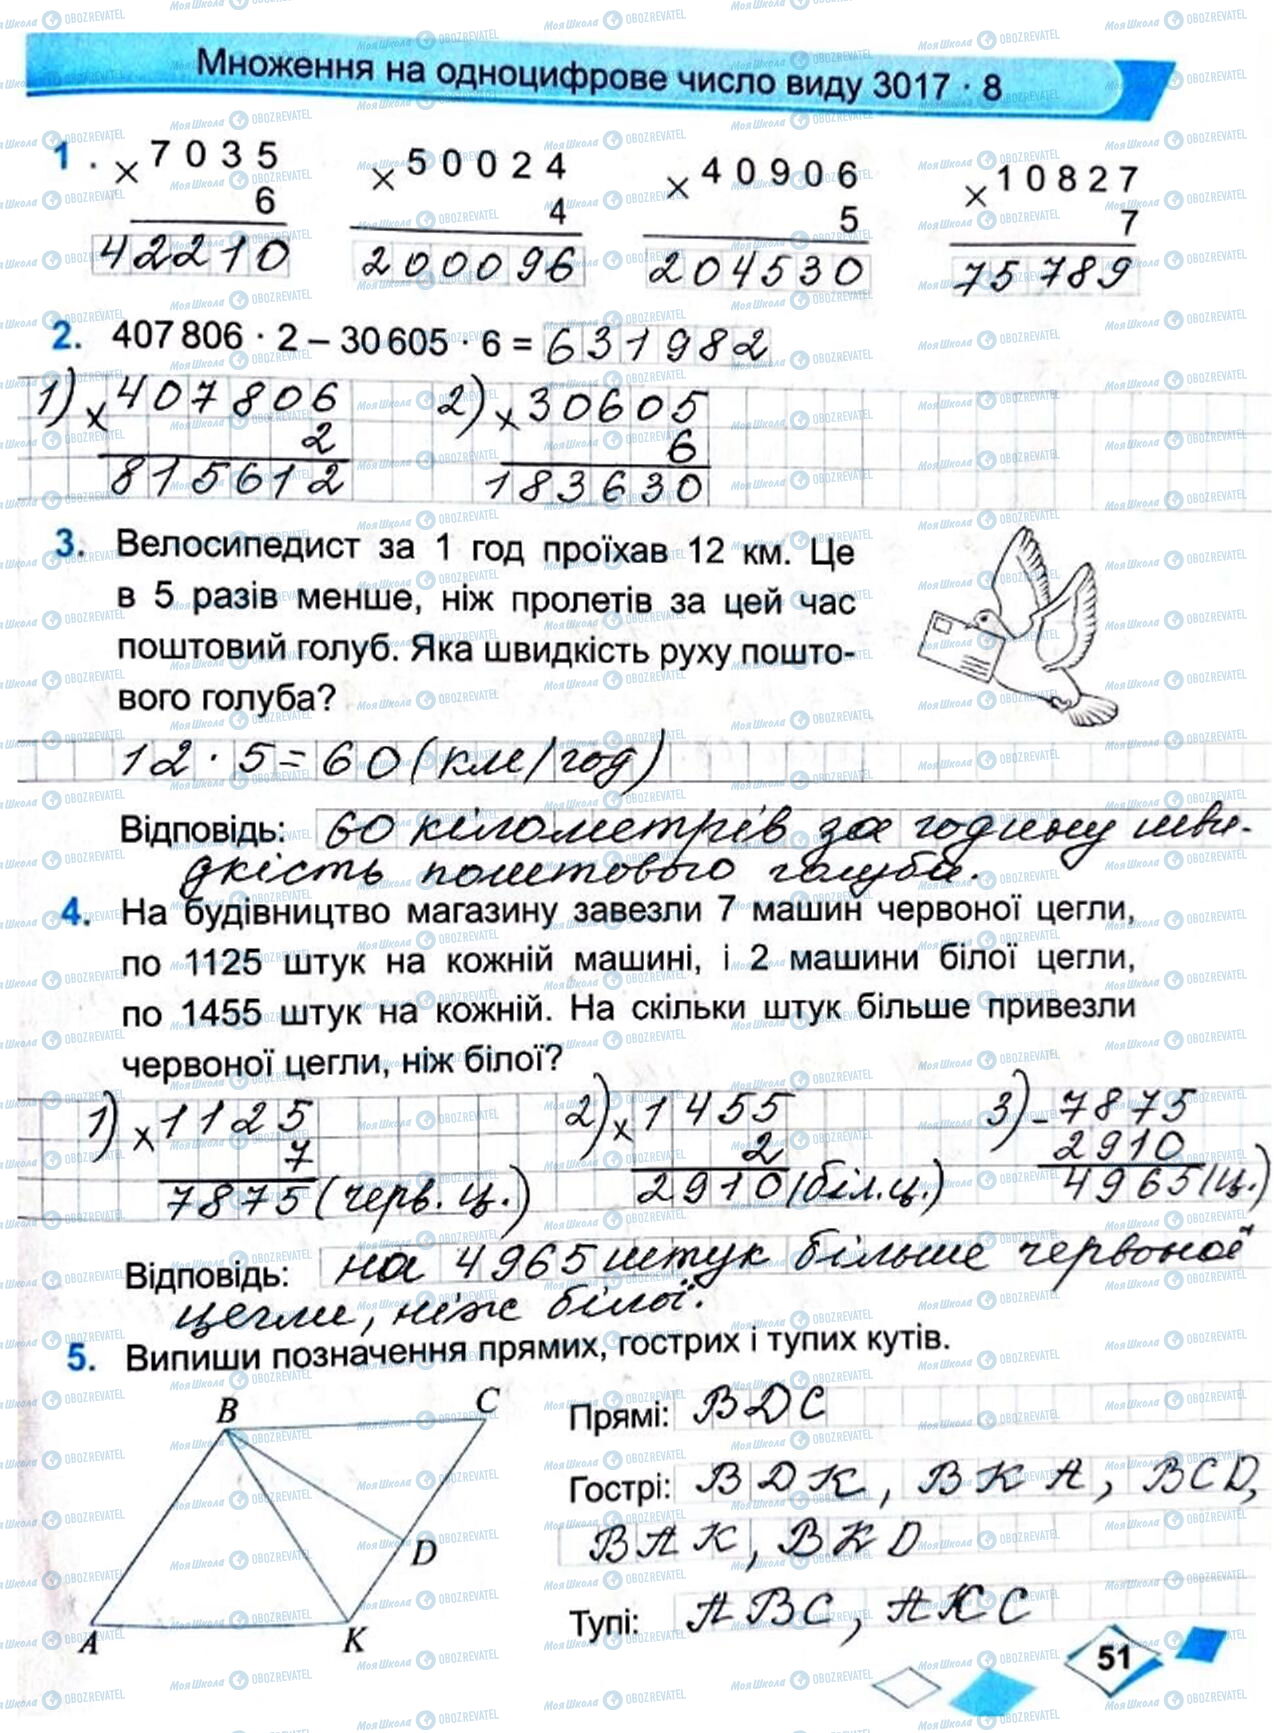 Множення на одноцифрове число виду 3017 · 8
1. × 7035 × 50024 × 40906 × 10827
6 4 5 7
42210 200096 204530 75789
2. 407 806 · 2 – 30 605 · 6 = 631982
1) × 407806 2) × 30605
2 6
815612 183630
3. Велосипедист за 1 год проїхав 12 км. Це
в 5 разів менше, ніж пролетів за цей час
поштовий голуб. Яка швидкість руху пошто-
вого голуба?
12 · 5 = 60 (км/год)
Відповідь: 60 кілометрів за годину шви-
дкість поштового голуба.
4. На будівництво магазину завезли 7 машин червоної цегли,
по 1125 штук на кожній машині, і 2 машини білої цегли,
по 1455 штук на кожній. На скільки штук більше привезли
червоної цегли, ніж білої?
1) × 1125 2) × 1455 3) - 7875
7 2 2910
7875 (черв. ц.) 2910 (біл. ц.) 4965 (ц.)
Відповідь: на 4965 штук більше червоної
цегли, ніж білої.
5. Випиши позначення прямих, гострих і тупих кутів.
B C
D
A K
Прямі: BDC
Гострі: BDK, BKA, BCD,
BAK, BKD
Тупі: ABC, AKC
51
МояШкола OBOZREVATEL